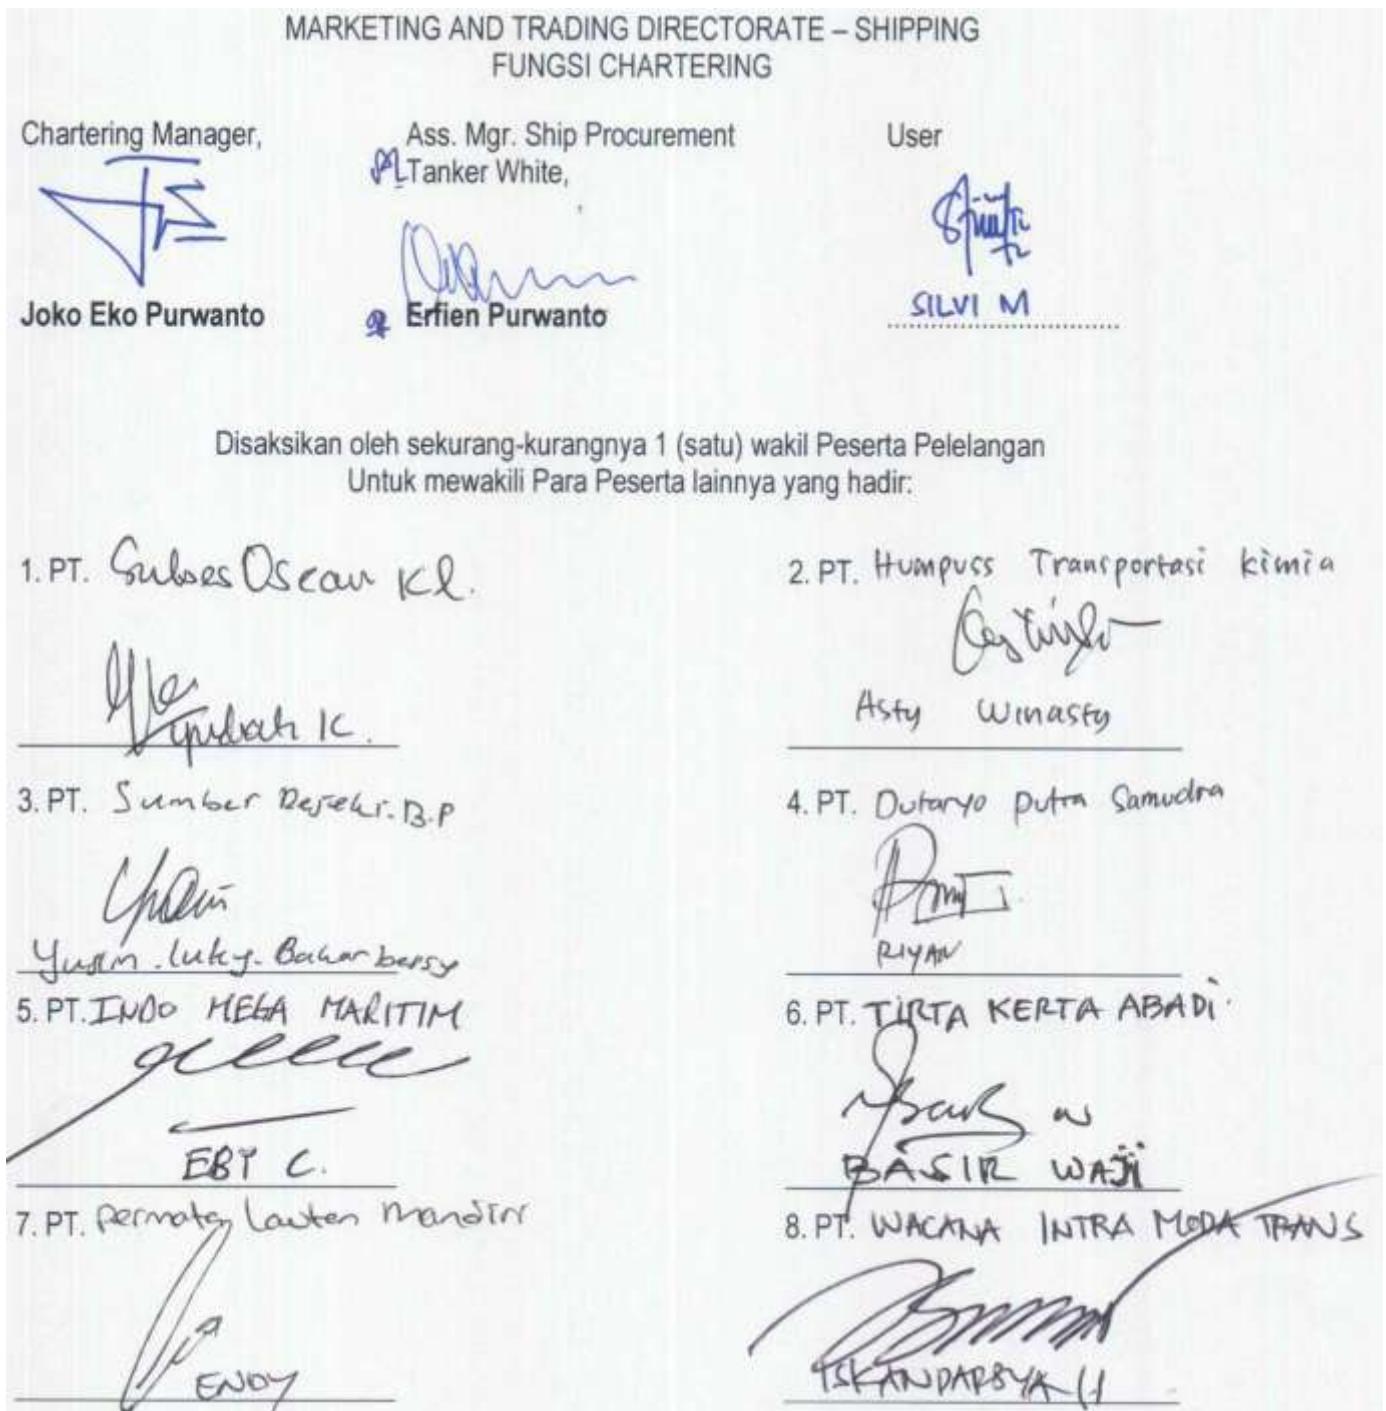 MARKETING AND TRADING DIRECTORATE – SHIPPING
FUNGSI CHARTERING
Chartering Manager,
Ass. Mgr. Ship Procurement
Tanker White,
User
Joko Eko Purwanto
Erfien Purwanto
SILVI M
Disaksikan oleh sekurang-kurangnya 1 (satu) wakil Peserta Pelelangan
Untuk mewakili Para Peserta lainnya yang hadir:
1. PT. Sukses Oscean Kl.
2. PT. Humpuss Transportasi kimia
K.
Asty Winasty
3. PT. Sumber Rejeki. B.P
4. PT. Dutaryo putra Samudra
Yusin. luky.
RIYAN
5. PT. INDO MEGA MARITIM
6. PT. TIRTA KERTA ABADI
EBY C.
BASIR WAJI
7. PT. permata Lautan mandiri
8. PT. WACANA INTRA MODA TRANS
ENDY
ISKANDARSYAH